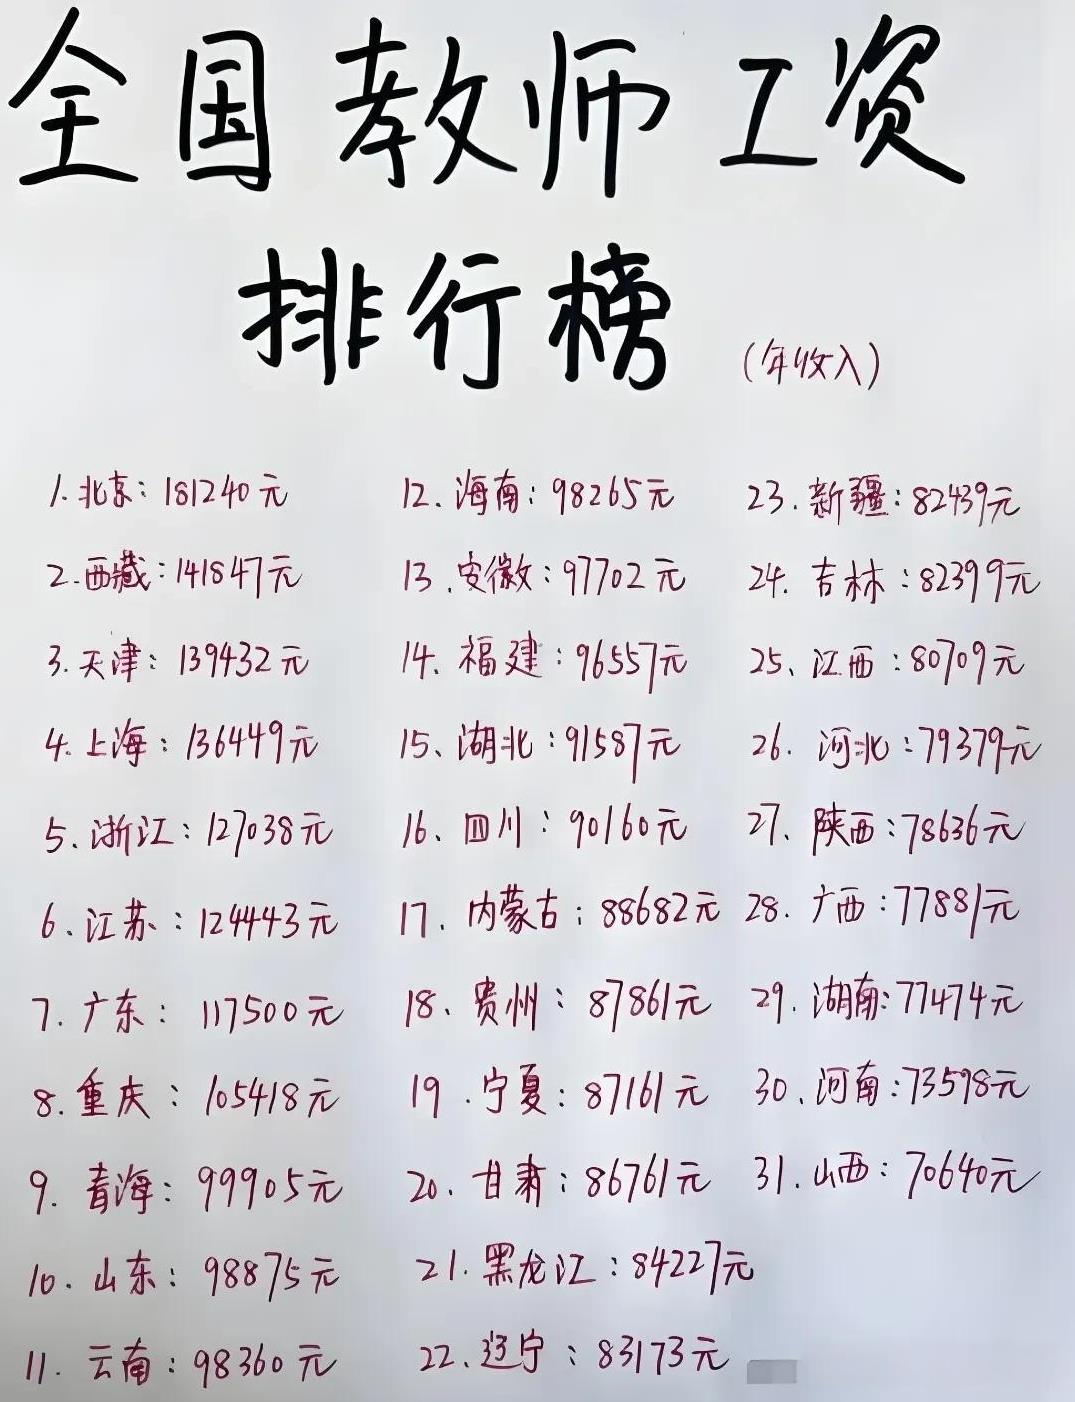 全国教师工资
排行榜
(年收入)
1.北京：181240元
2.西藏：141847元
3.天津：139432元
4.上海：136449元
5.浙江：127038元
6、江苏：124443元
7.广东：117500元
8.重庆：105418元
9.青海：99905元
10.山东：98875元
11.云南：98360元
12.海南：98265元
13.安徽：97702元
14、福建：96557元
15、湖北：91587元
16、四川：90160元
17.内蒙古：88682元
18、贵州：87861元
19.宁夏：87161元
20、甘肃：86761元
21.黑龙江：84227元
22、辽宁：83173元
23.新疆：82439元
24.吉林：82399元
25、江西：80709元
26.河北：79379元
27、陕西：78636元
28.广西：77881元
29.湖南：77474元
30、河南：73598元
31.山西：70640元